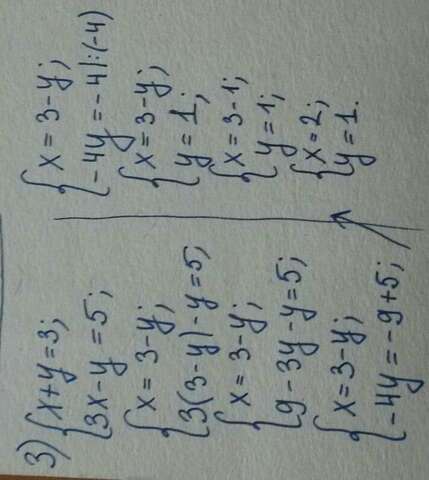 3) {x+y=3;
{3x-y=5;
{x=3-y;
{3(3-y)-y=5;
{x=3-y;
{9-3y-y=5;
{x=3-y;
{-4y=-9+5;
{x=3-y;
{-4y=-4|:(-4)
{x=3-y;
{y=1;
{x=3-1;
{y=1;
{x=2;
{y=1.